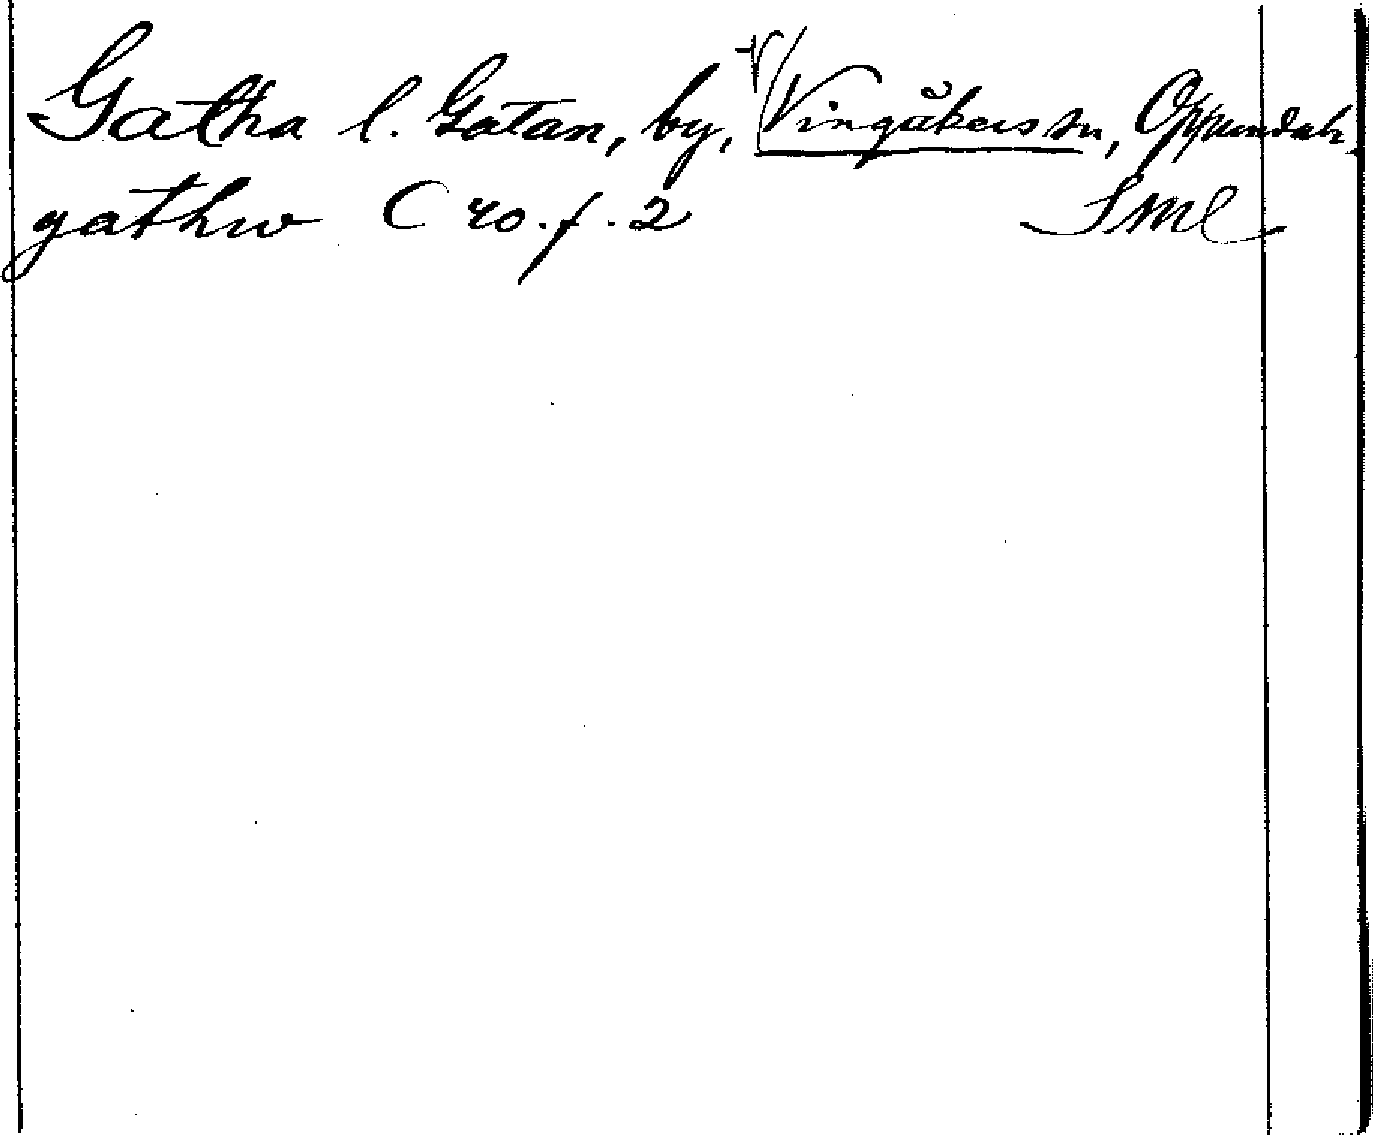 Gatha l. Gatan, by, V/Vingåkers sn, Oppunda h.
gathw C 40. f. 2 Sml